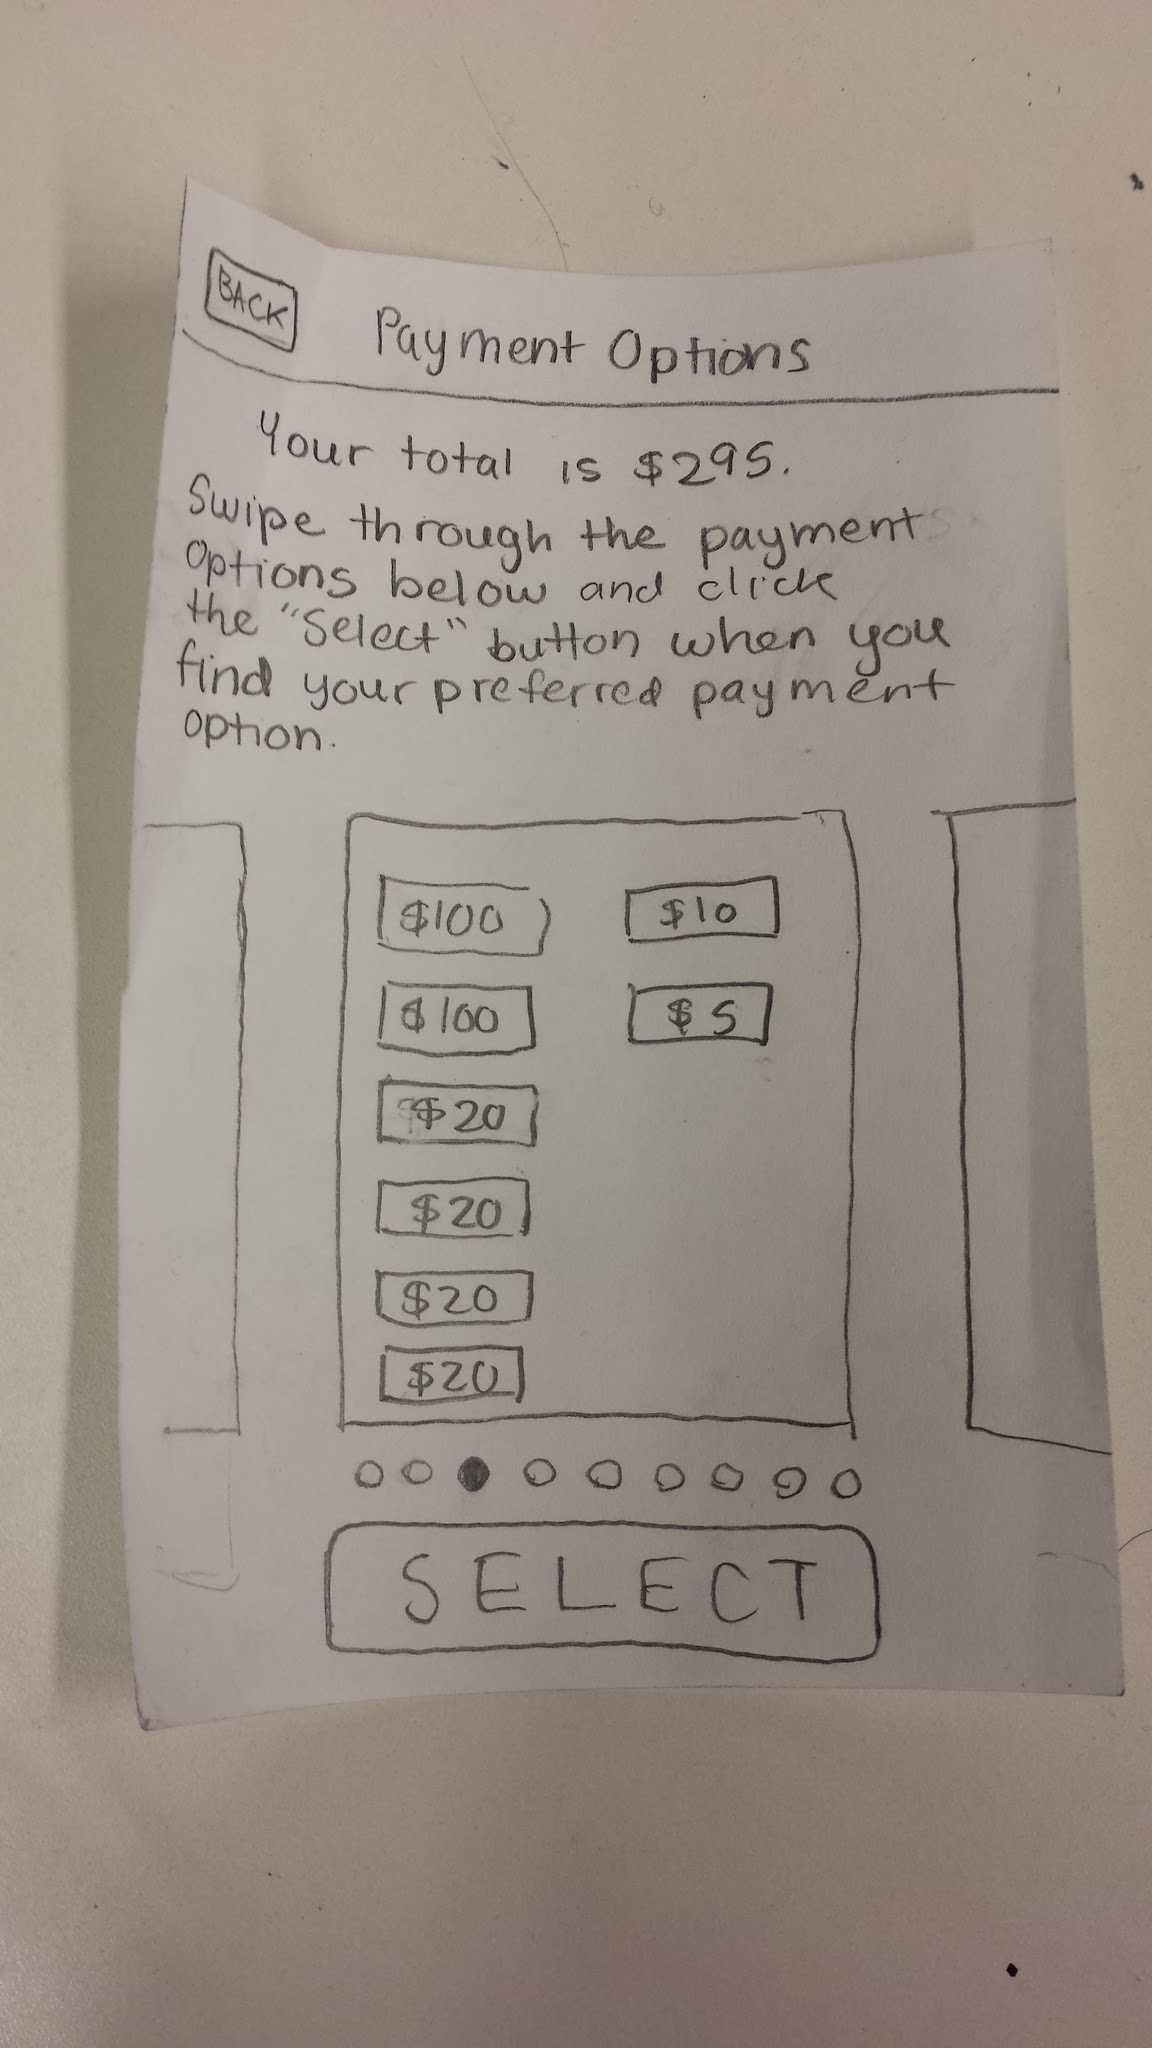 BACK
Payment Options
Your total is $295.
Swipe through the payment
options below and click
the "Select" button when you
find your preferred payment
option.
$100 $10
$100 $5
$20
$20
$20
$20
SELECT